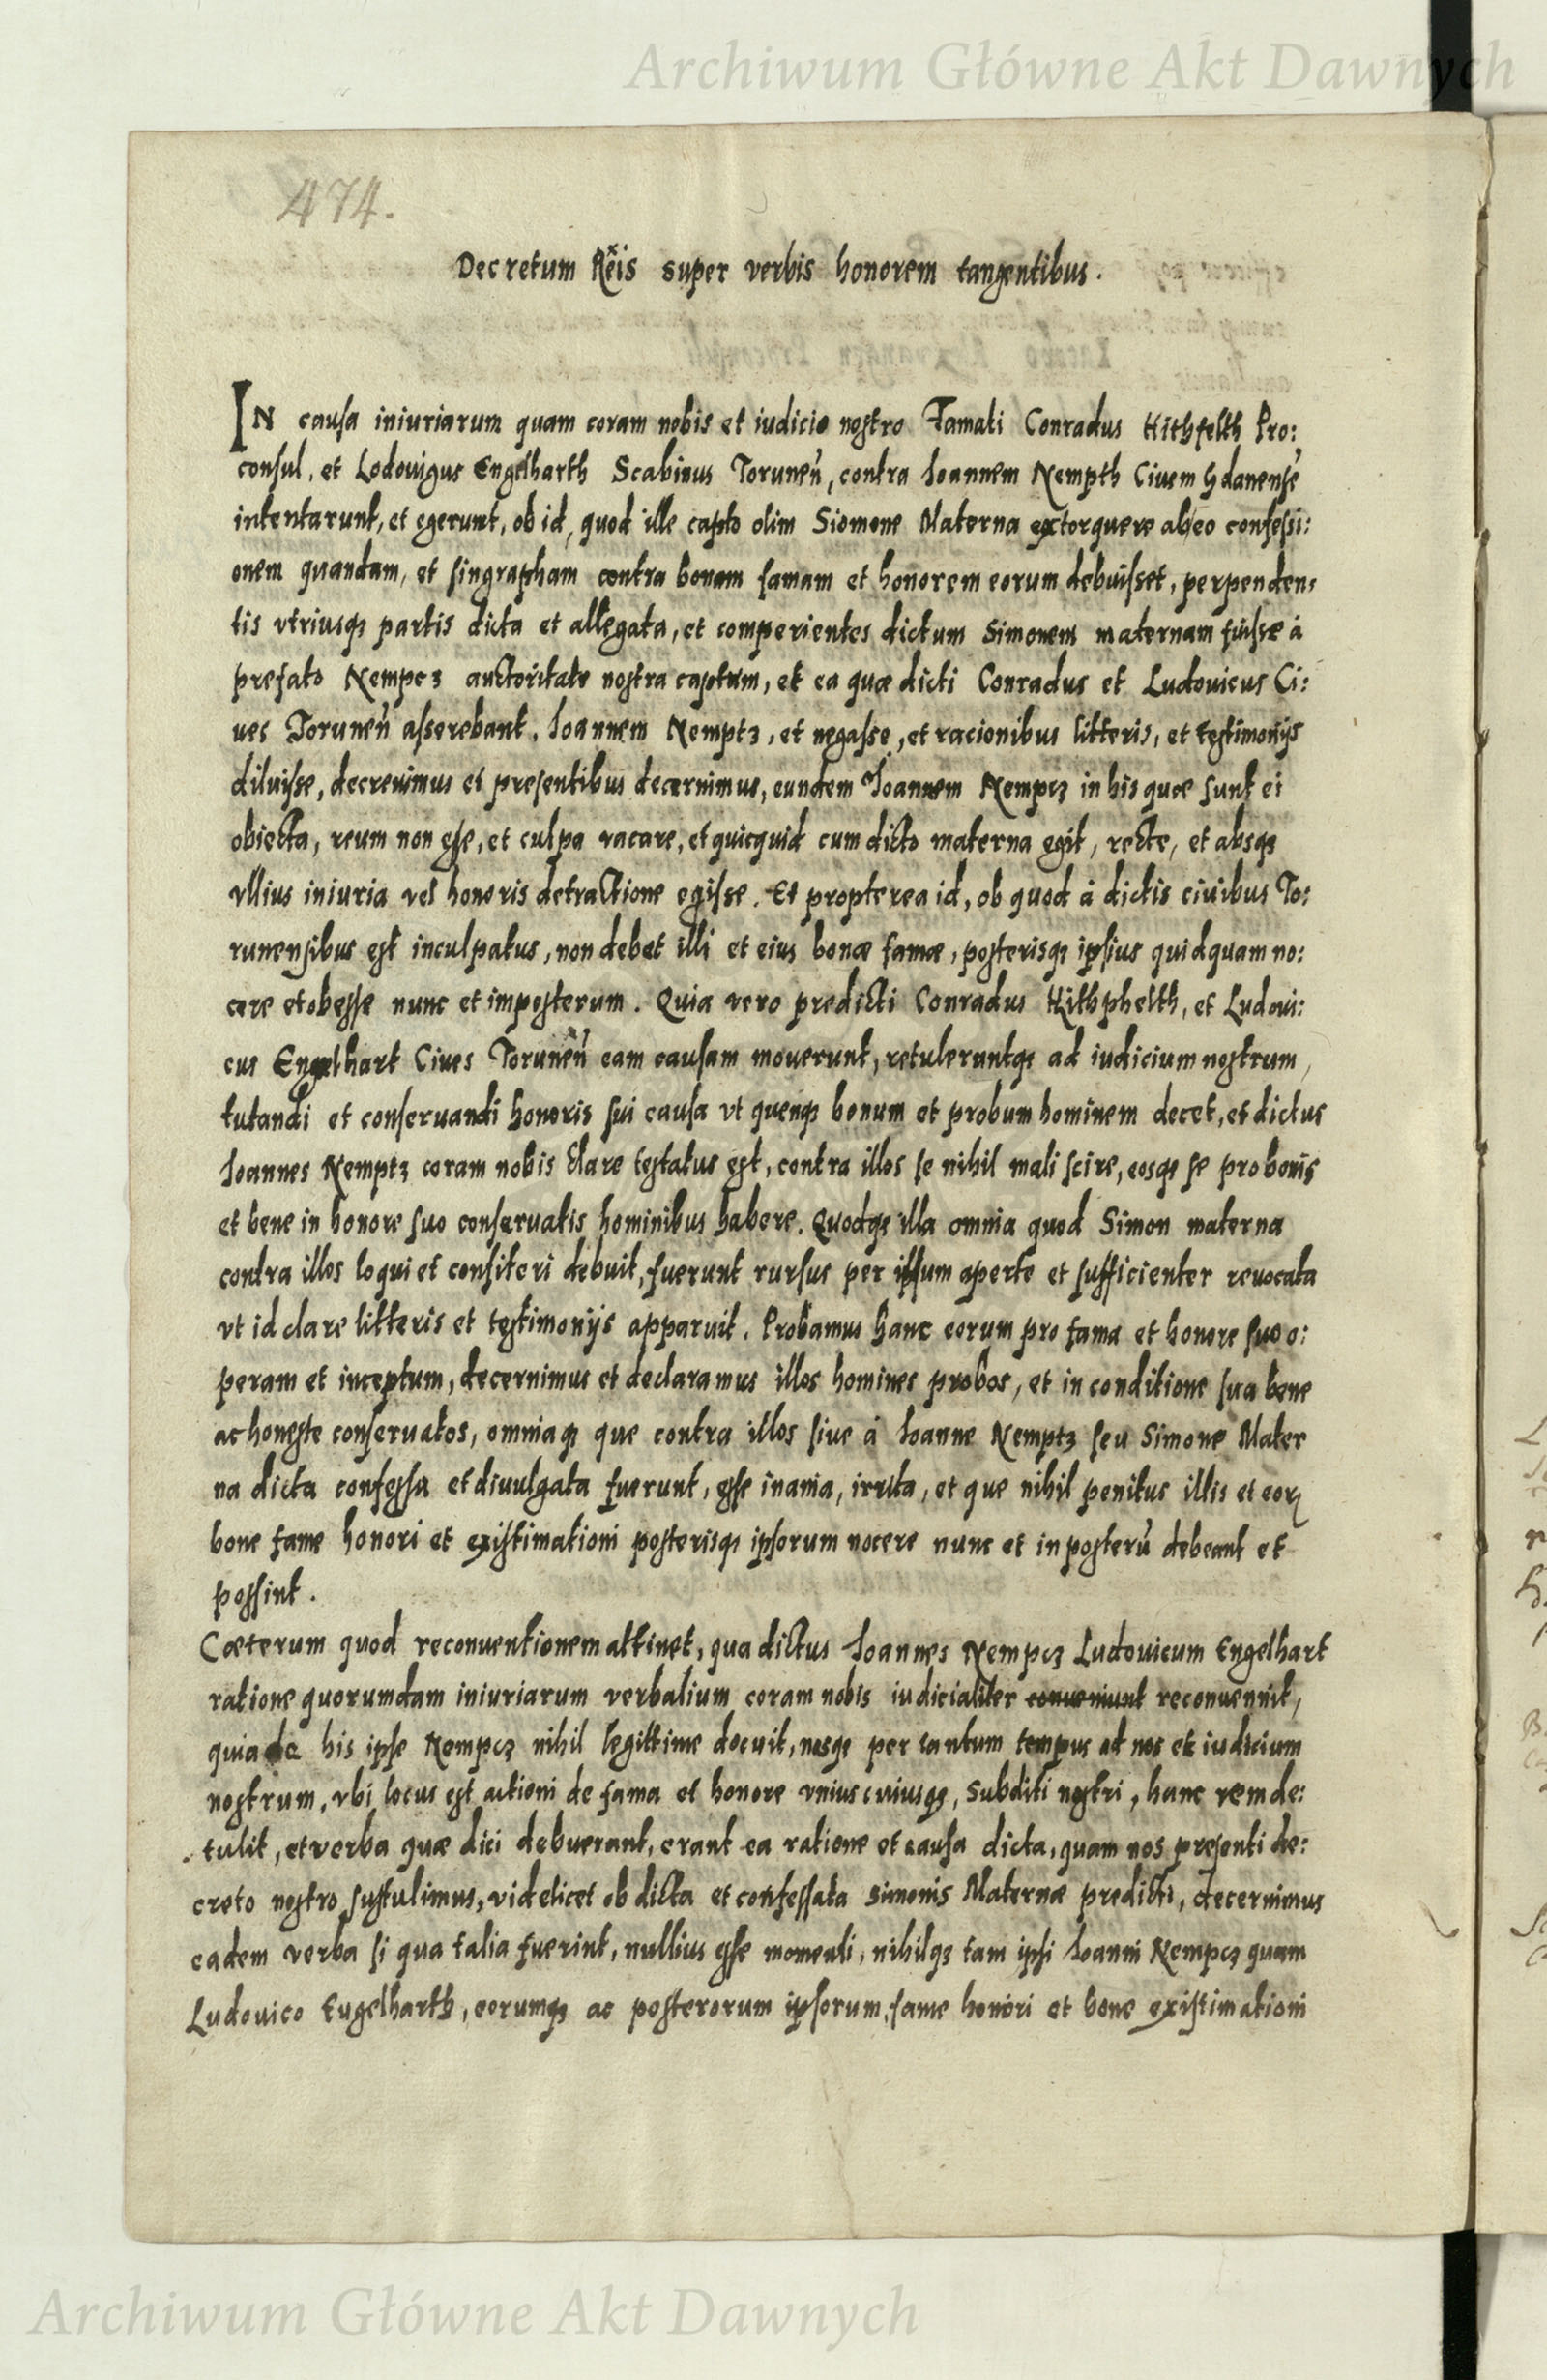 Archiwum Główne Akt Dawnych
474.
Decretum Rẽis super verbis honorem tangentibus.
IN causa iniuriarum quam coram nobis et iudicio nostro Famati Conradus Hithfelth Pro:
consul, et Lodouigus Engelharth Scabinus Torunen̄, contra Ioannem Nempth Ciuem Gdanensẽ
intentarunt, et egerunt, ob id, quod ille capto olim Siomone Materna extorquere ab eo confessi:
onem quandam, et singrapham contra bonam famam et honorem eorum debuisset, perpenden:
tis vtriusqȝ partis dicta et allegata, et comperientes dictum Simonem maternam fuisse à
prefato Nempcz auctoritate nostra captum, et ea quæ dicti Conradus et Ludouicus Ci:
ues Torunen̄ asserebant, Ioannem Nemptz, et negasse, et racionibus litteris, et testimonijs
diluisse, decreuimus et presentibus decernimus, eundem Joannem Nempcz in his quæ sunt ei
obiecta, reum non esse, et culpa vacare, et quicquid cum dicto materna egit, recte, et absqȝ
vllius iniuria vel honoris detractione egisse. Et propterea id, ob quod à dictis ciuibus To:
runensibus est inculpatus, non debet illi et eius bonæ famæ, posterisqȝ ipsius quidquam no:
cere et obesse nunc et imposterum. Quia vero predicti Conradus Hithphelth, et Ludoui:
cus Engelhart Ciues Torunen̄ eam causam mouerunt, retuleruntqȝ ad iudicium nostrum,
tutandi et conseruandi honoris sui causa vt quenqȝ bonum et probum hominem decet, et dictus
Ioannes Nemptz coram nobis clare testatus est, contra illos se nihil mali scire, eosqȝ se pro bonis
et bene in honore suo conseruatis hominibus habere. Quodqȝ illa omnia quod Simon materna
contra illos loqui et confiteri debuit, fuerunt rursus per ipsum aperte et sufficienter reuocata
vt id clare litteris et testimonijs apparuit. Probamus hanc eorum pro fama et honore suo o:
peram et inceptum, decernimus et declaramus illos homines probos, et in conditione sua bene
ac honeste conseruatos, omniaqȝ que contra illos siue à Ioanne Nemptz seu Simone Mater
na dicta confessa et diuulgata fuerunt, esse inania, irrita, et que nihil penitus illis et eorꝝ
bone fame honori et existimationi posterisqȝ ipsorum nocere nunc et in posterū debeant et
possint.
Cæterum quod reconuentionem attinet, qua dictus Ioannes Nempcz Ludouicum Engelhart
ratione quorumdam iniuriarum verbalium coram nobis iudicialiter conueniunt reconuennit,
quia de his ipse Nempcz nihil legittime docuit, neqȝ per tantum tempus ad nos et iudicium
nostrum, vbi locus est actioni de fama et honore vnius cuiusqȝ, subditi nostri, hanc rem de:
tulit, et verba quæ dici debuerant, erant ea ratione et causa dicta, quam nos presenti de:
creto nostro sustulimus, videlicet ob dicta et confessata Simonis Maternæ predicti, decernimus
eadem verba si qua talia fuerint, nullius esse momenti, nihilqȝ tam ipsi Ioanni Nempcz quam
Ludouico Engelharth, eorumqȝ ac posterorum ipsorum, fame honori et bone existimationi
Archiwum Główne Akt Dawnych